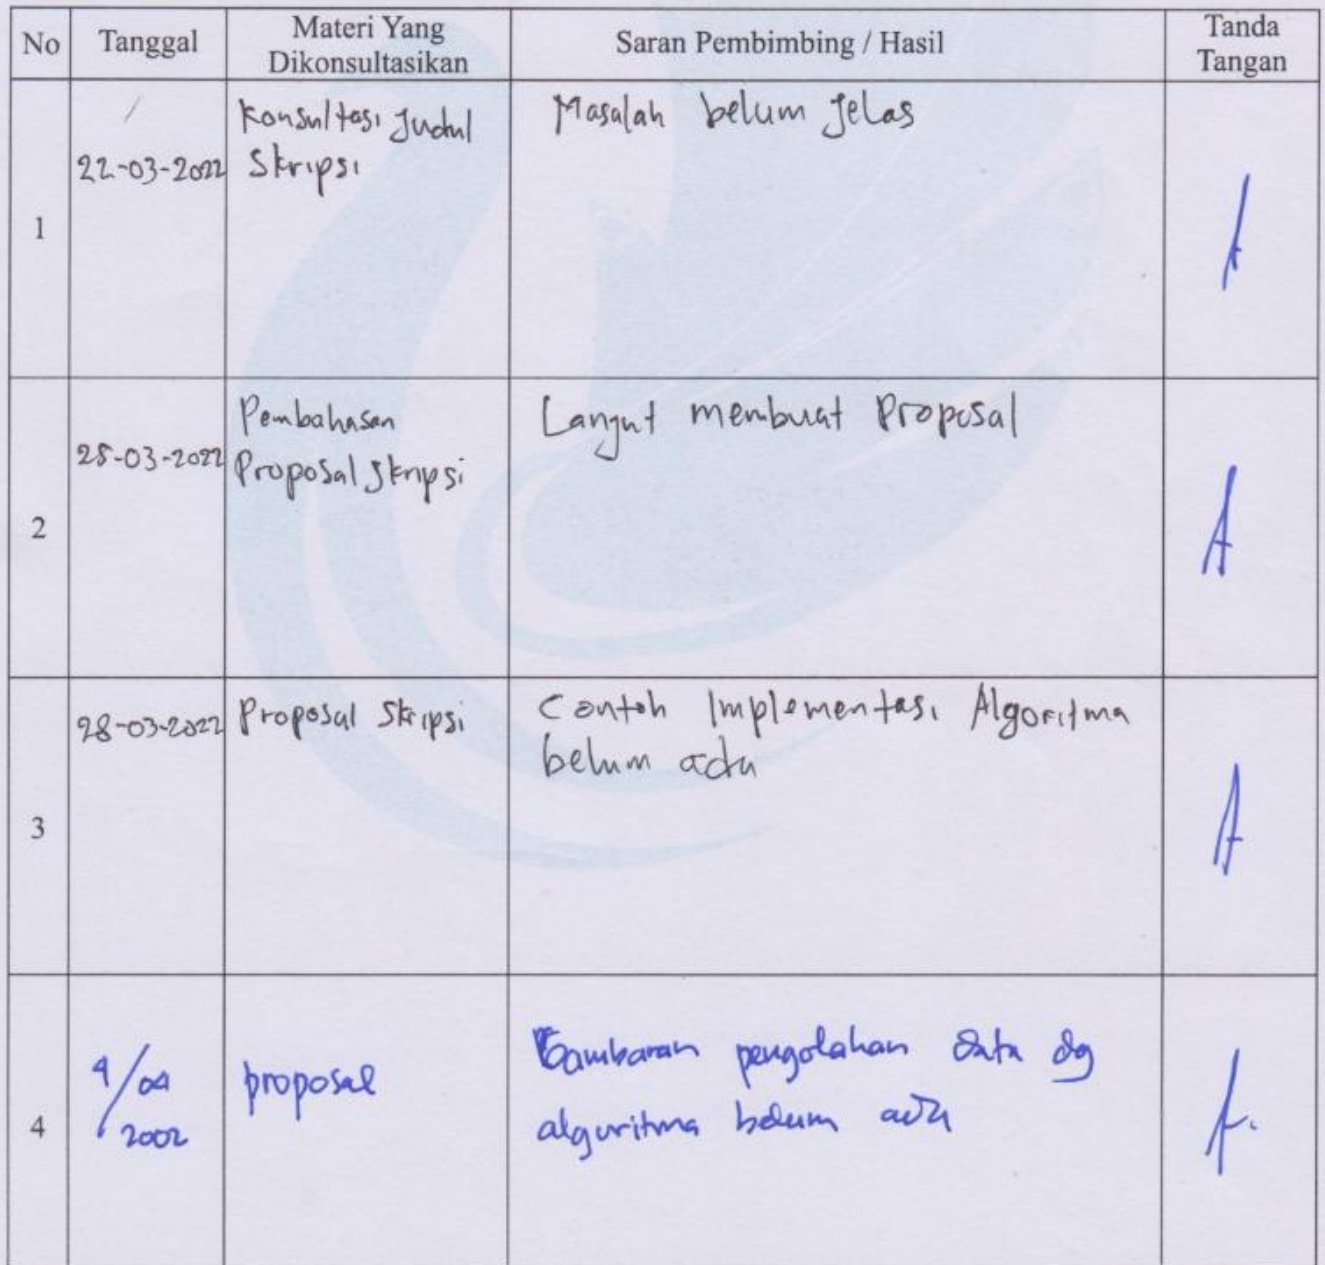 No Tanggal Materi Yang Dikonsultasikan Saran Pembimbing / Hasil Tanda Tangan
1
22-03-2022
Konsultasi Judul
Skripsi
Masalah belum Jelas
2
25-03-2022
Pembahasan
Proposal Skripsi
Lanjut membuat Proposal
3
28-03-2022
Proposal Skripsi
Contoh Implementasi Algoritma
belum ada
4
4/04
2002
proposal
Gambaran pengolahan data dg
algoritma belum ada